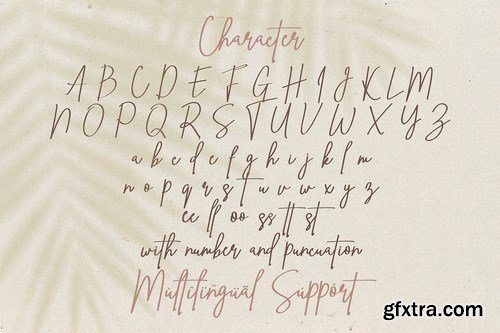 Character
A B C D E F G H I J K L M
N O P Q R S T U V W X Y Z
a b c d e f g h i j k l m
n o p q r s t u v w x y z
ee ll oo ss tt st
with number and puncuation
Mùltilin̈güäl Support
gfxtra.com